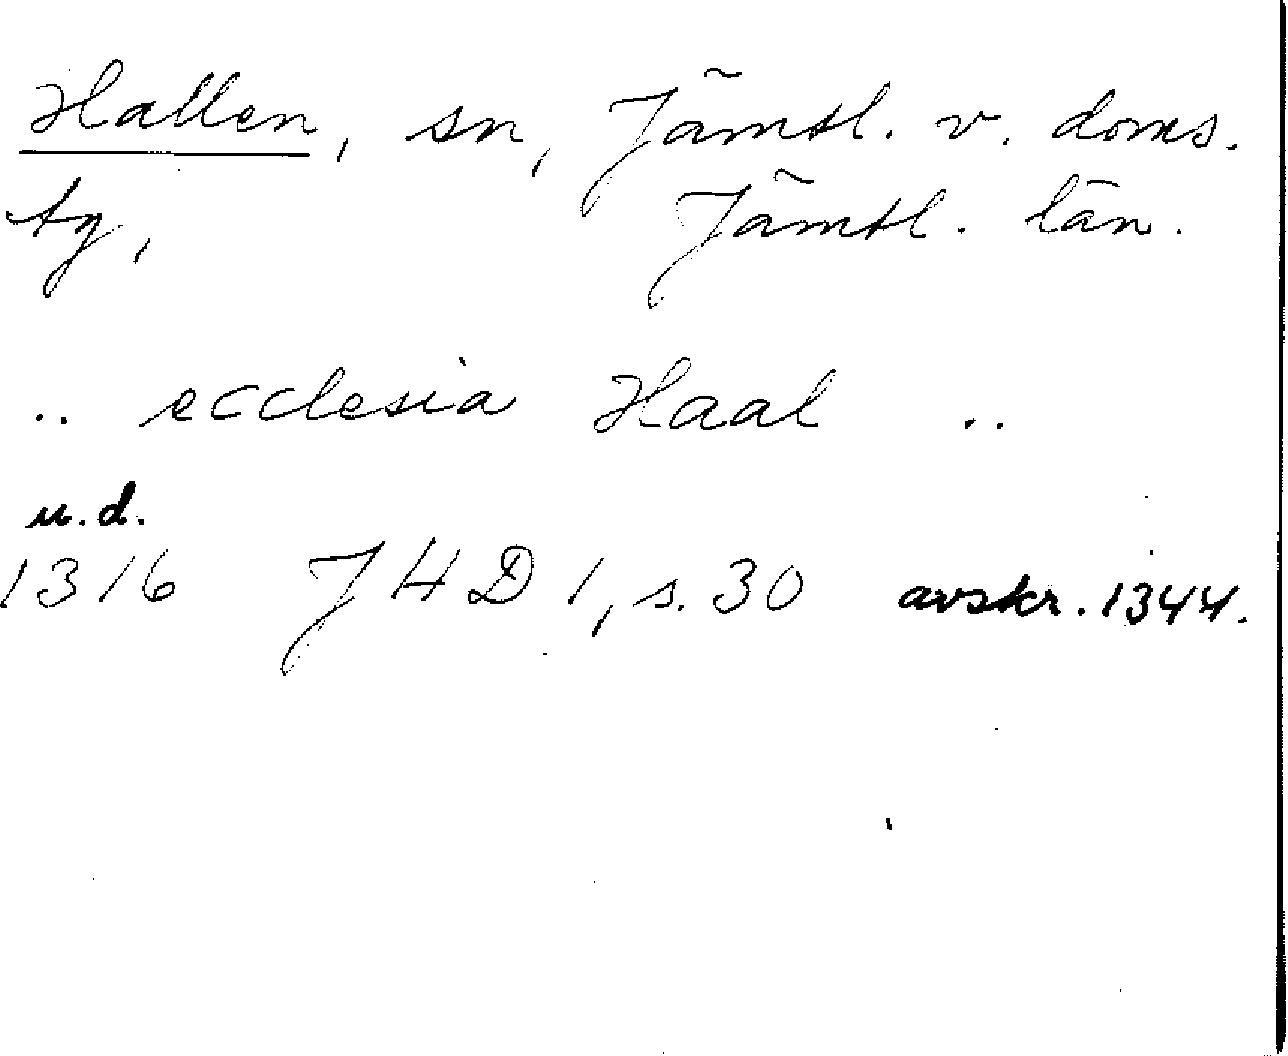 Hallen, sn, Jämtl. v. doms.
tg, Jämtl. län.
.. ecclesia Haal ..
u.d.
1316 JHD 1, s. 30 avskr. 1344.